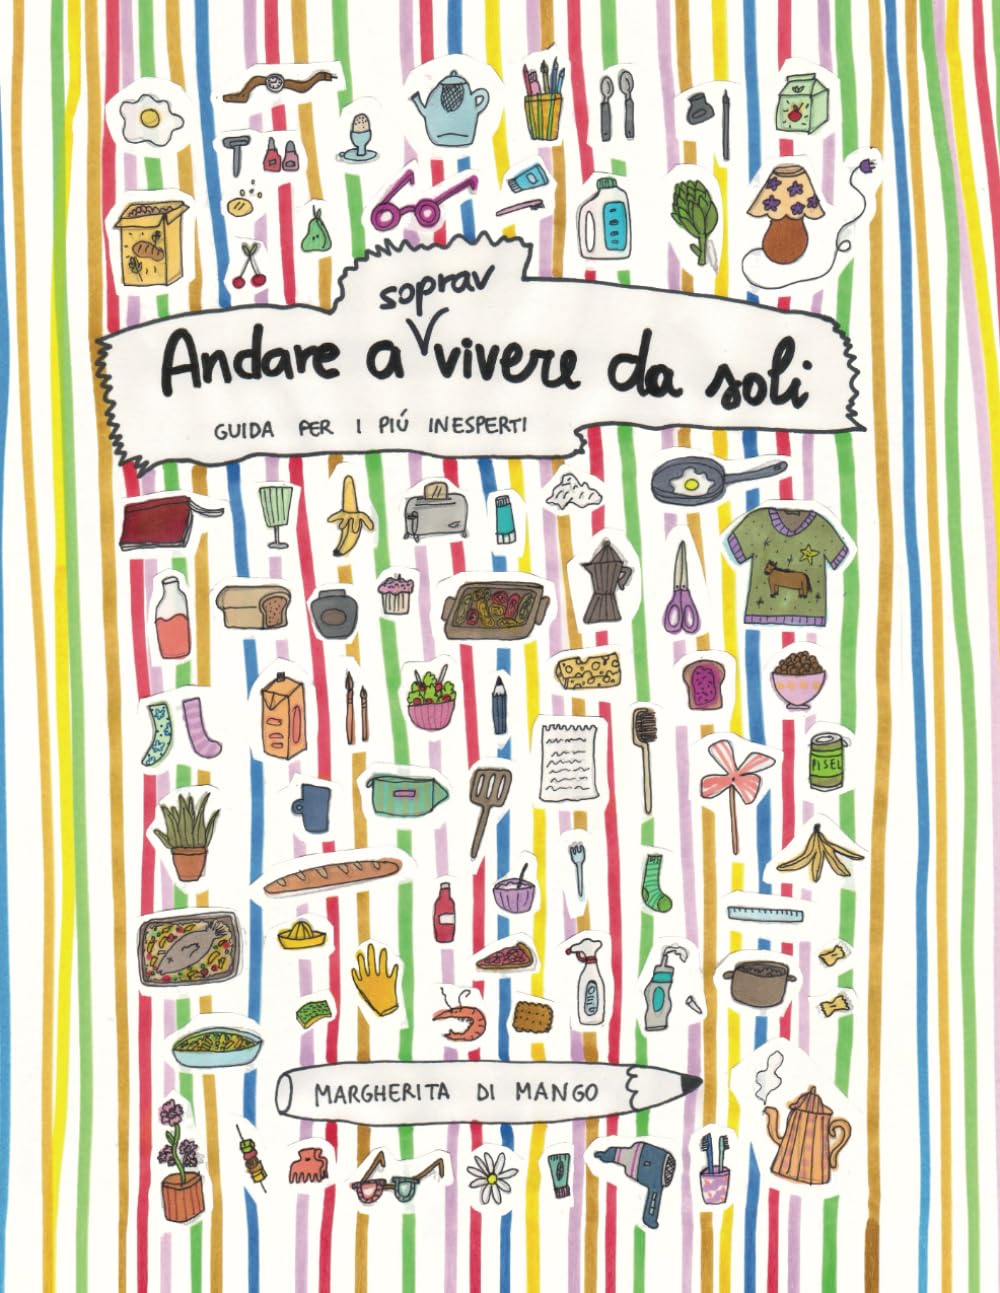 soprav
Andare a vivere da soli
GUIDA PER I PIÚ INESPERTI
PISEL
MARGHERITA DI MANGO